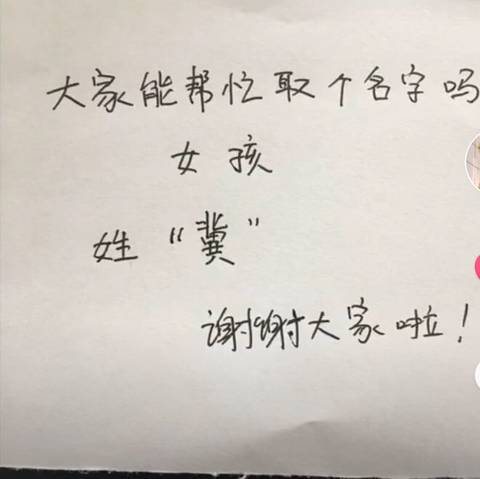 大家能帮忙取个名字吗
女孩
姓“冀”
谢谢大家啦！